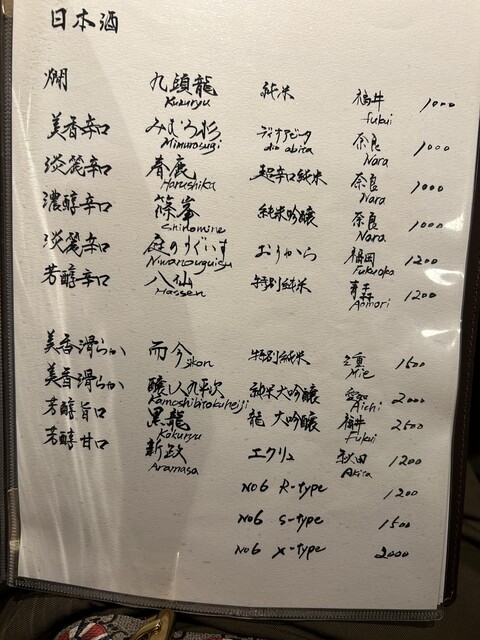 日本酒
燗 九頭龍 純米 福井 1000
Kuzuryu fukui
美香辛口 みむろ杉 ディオアビータ 奈良 1000
Mimurosugi dio abita Nara
淡麗辛口 春鹿 超辛口純米 奈良 1000
Harushika Nara
濃醇辛口 篠峯 純米吟醸 奈良 1000
Shinomine Nara
淡麗辛口 庭のうぐいす おりがらみ 福岡 1200
Niwanouguisu Fukuoka
芳醇辛口 八仙 特別純米 青森 1200
Hassen Aomori
美香滑らか 而今 特別純米 三重 1500
jikon Mie
美香滑らか 醸し人九平次 純米大吟醸 愛知 2000
Kamoshibitokuheiji Aichi
芳醇旨口 黒龍 龍 大吟醸 福井 2500
Kokuryu Fukui
芳醇甘口 新政 エクリュ 秋田 1200
Aramasa Akita
No6 R-type 1200
No6 S-type 1500
No6 X-type 2000